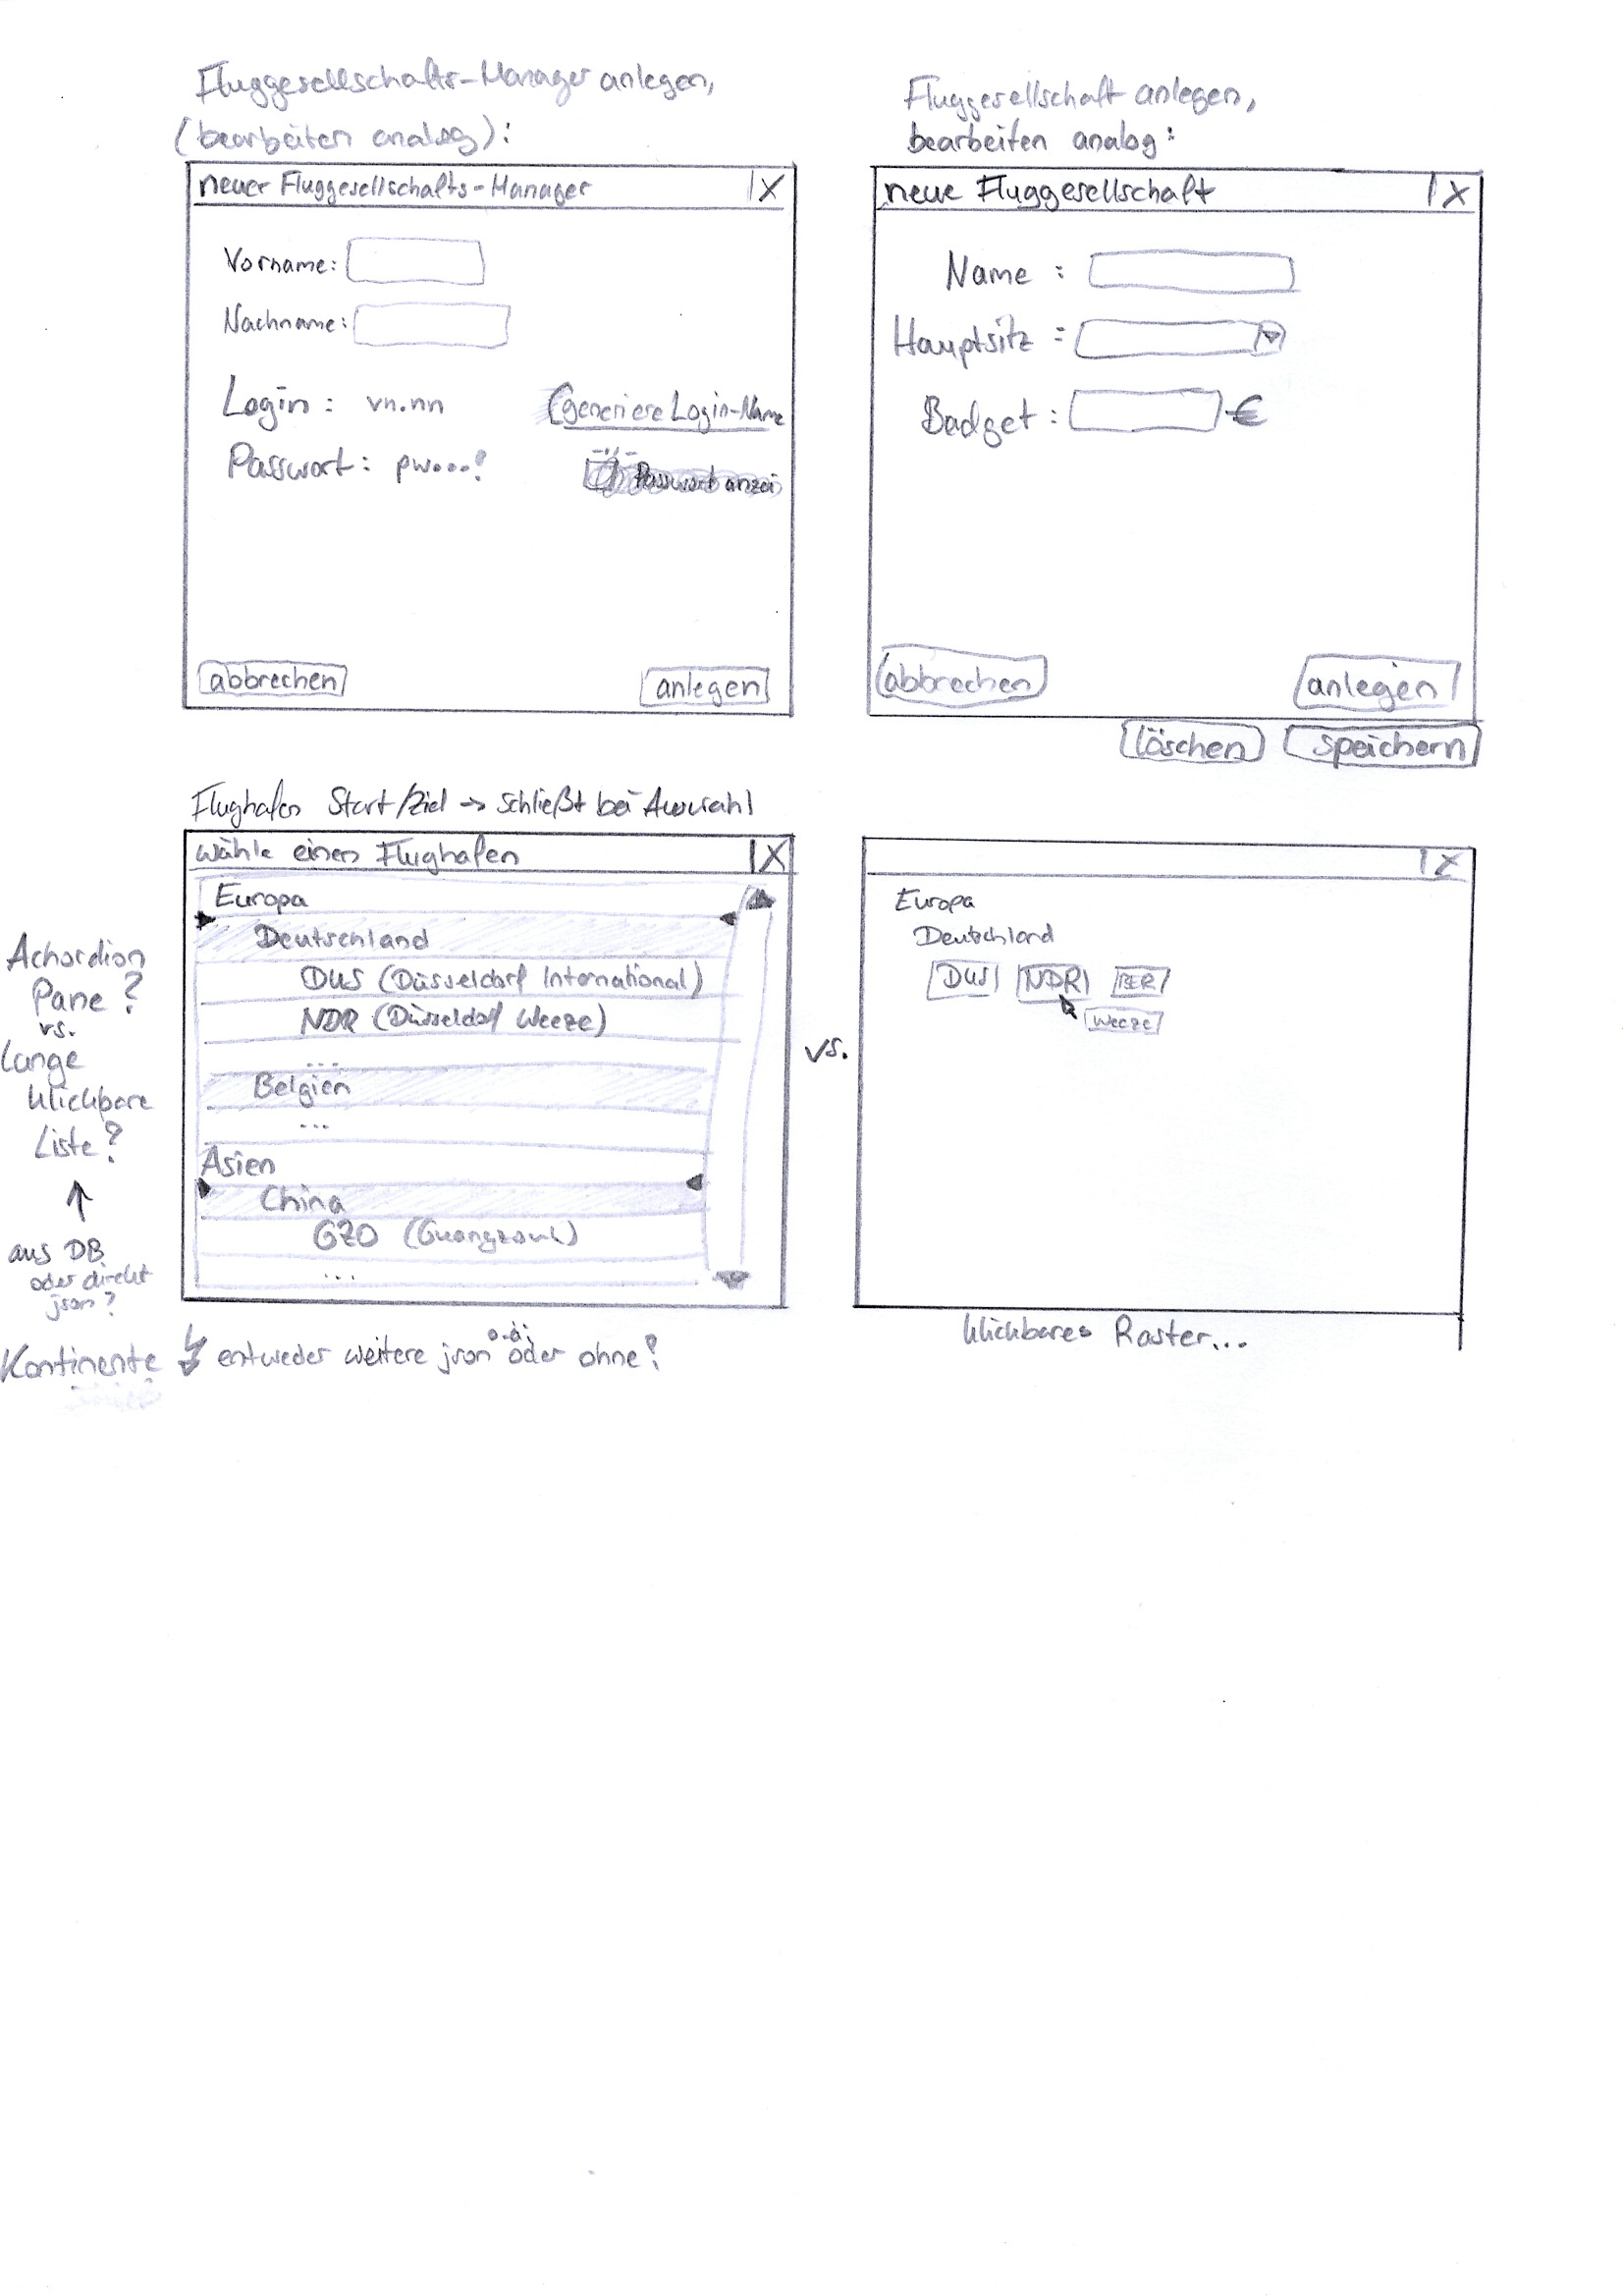 Fluggesellschafts-Manager anlegen,
(bearbeiten analog):
neuer Fluggesellschafts-Manager X
Vorname:
Nachname:
Login: vn.nn generiere Login-Name
Passwort: pw...!
Passwort anzei
abbrechen anlegen
Fluggesellschaft anlegen,
bearbeiten analog:
neue Fluggesellschaft X
Name :
Hauptsitz :
Budget : €
abbrechen anlegen
löschen speichern
Flughafen Start/Ziel → schließt bei Auswahl
Wähle einen Flughafen X
Europa
Deutschland
DUS (Düsseldorf International)
NDR (Düsseldorf Weeze)
...
Belgien
...
Asien
China
GZO (Guangzouh)
...
Achordion
Pane?
vs.
lange
klickbare
Liste?
↑
aus DB
oder direkt
json?
Kontinente ↯ entweder weitere json o.ä. oder ohne?
vs.
X
Europa
Deutschland
DUS NDR BER
Weeze
klickbares Raster...